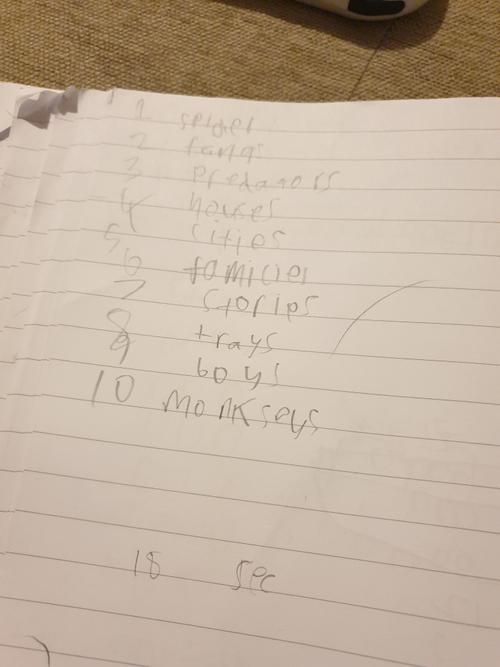 1 spider
2 fangs
3 predators
4 houses
5 cities
6 families
7 stories
8 trays
9 boys
10 monkseys
18 sec